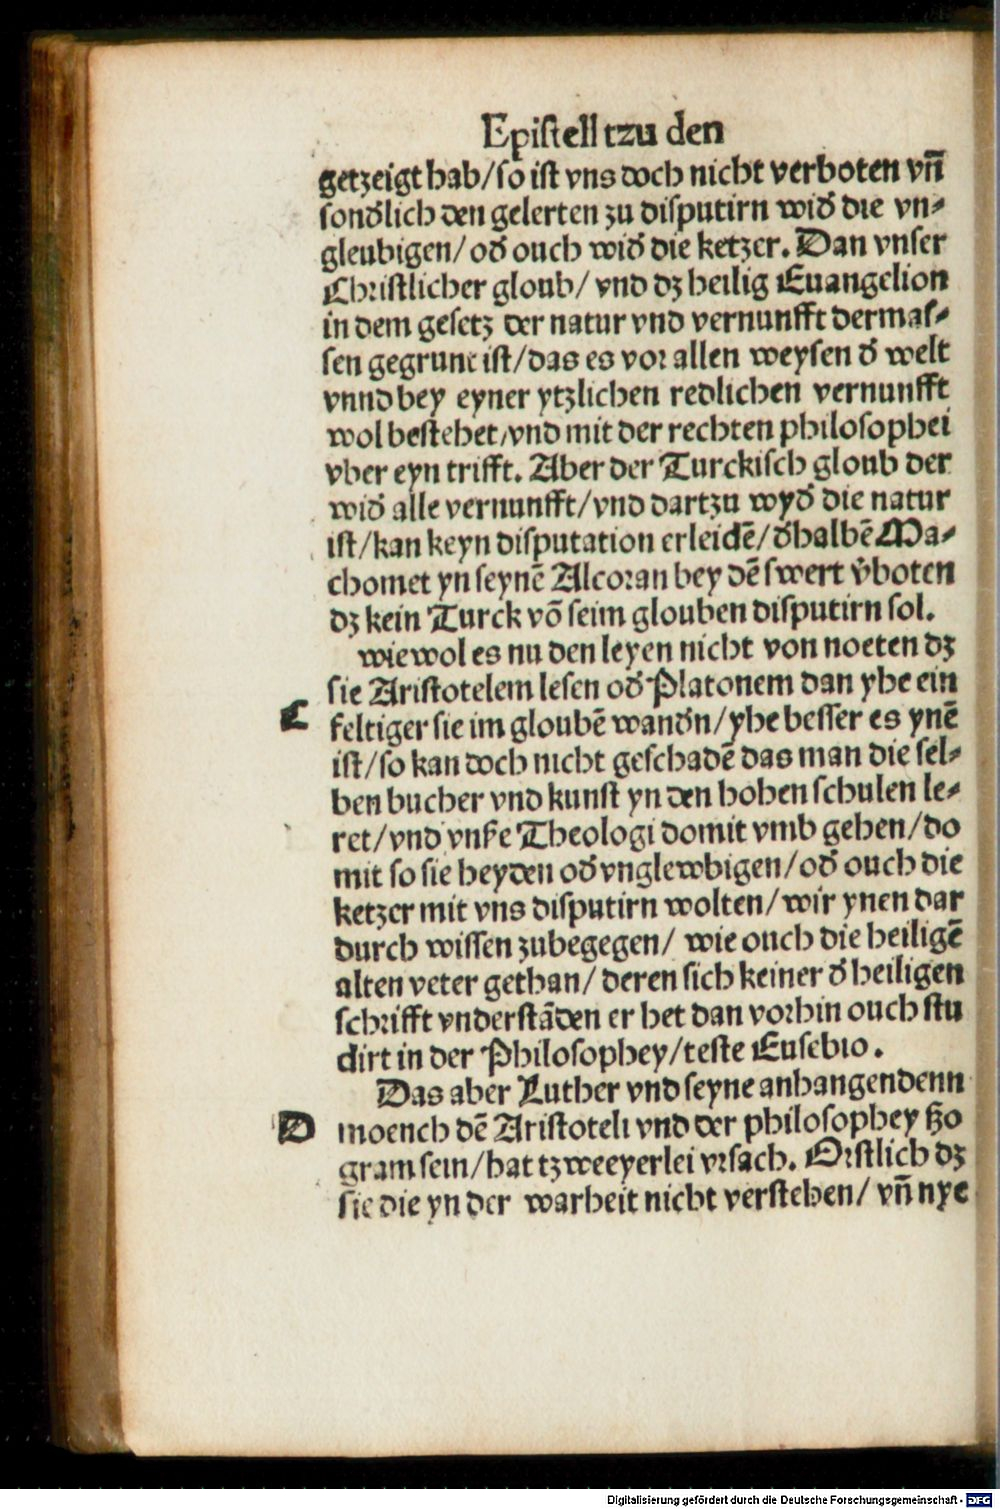 Epistell tzu den
getzeigt hab/so ist vns doch nicht verboten vn̄
sonđlich den gelerten zu disputirn wiđ die vn⸗
gleubigen/ ođ ouch wiđ die ketzer. Dan vnser
Christlicher gloub/ vnd dz heilig Euangelion
in dem gesetz der natur vnd vernunfft dermas⸗
sen gegrunt ist/das es vor allen weysen đ welt
vnnd bey eyner ytzlichen redlichen vernunfft
wol bestehet/vnd mit der rechten philosophei
vber eyn trifft. Aber der Turckisch gloub der
wiđ alle vernunfft/vnd dartzu wyđ die natur
ist/kan keyn disputation erleidē/đhalbē Ma⸗
chomet yn seynē Alcoran bey dē swert v̄boten
dz kein Turck vō seim glouben disputirn sol.
wiewol es nu den leyen nicht von noeten dz
sie Aristotelem lesen ođ Platonem dan yhe ein
C
feltiger sie im gloubē wanđn/yhe besser es ynē
ist/so kan doch nicht geschadē das man die sel⸗
ben bucher vnd kunst yn den hohen schulen le⸗
ret/vnd vnße Theologi domit vmb gehen/do
mit so sie heyden ođ vnglewbigen/ođ ouch die
ketzer mit vns disputirn wolten/wir ynen dar
durch wissen zubegegen/ wie ouch die heiligē
alten veter gethan/ deren sich keiner đ heiligen
schrifft vnderstāden er het dan vorhin ouch stu
dirt in der Philosophey/teste Eusebio.
Das aber Luther vnd seyne anhangendenn
D
moench dē Aristoteli vnd der philosophey ßo
gram sein/hat tzweeyerlei vrsach. Orstlich dz
sie die yn der warheit nicht verstehen/ vn̄ nye
Digitalisierung gefördert durch die Deutsche Forschungsgemeinschaft - DFG